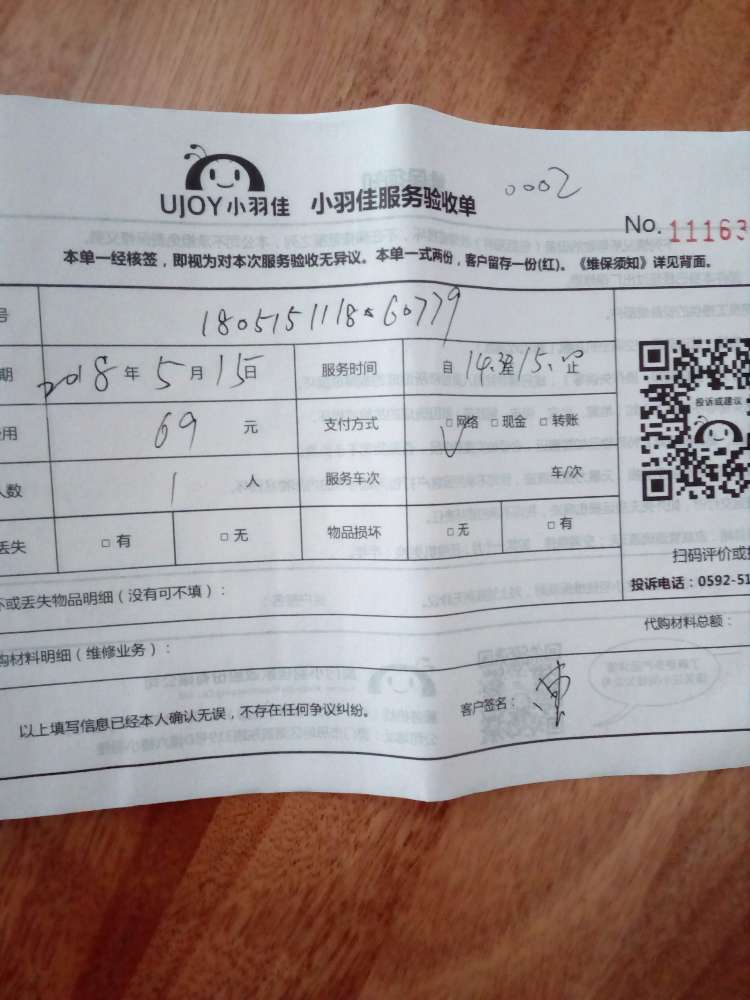 0002
UJOY小羽佳 小羽佳服务验收单
No. 11163
本单一经核签，即视为对本次服务验收无异议。本单一式两份，客户留存一份(红)。《维保须知》详见背面。
号 1805151118*60779
期 2018 年 5 月 15日 服务时间 自 14 至 15 止
投诉或建议
费用 69 元 支付方式 □网络 □现金 □转账
人数 1 人 服务车次 车/次
丢失 □有 □无 物品损坏 □无 □有
扫码评价或
投诉电话：0592-51
坏或丢失物品明细（没有可不填）：
代购材料总额：
购材料明细（维修业务）：
以上填写信息已经本人确认无误，不存在任何争议纠纷。 客户签名：